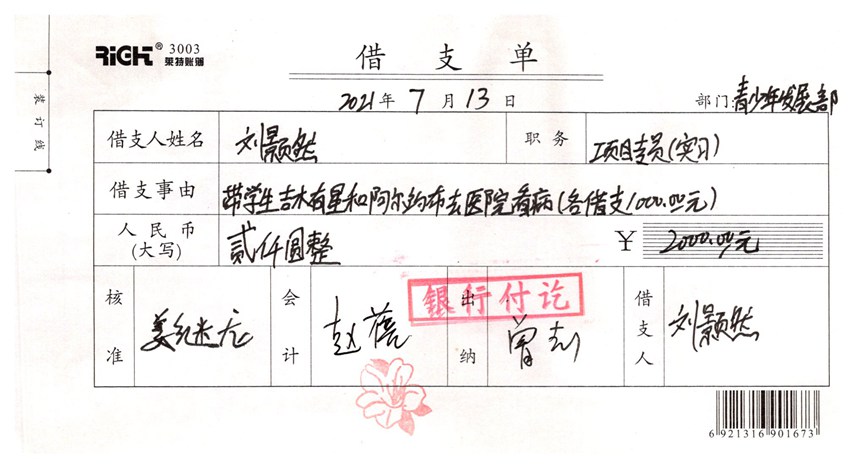 RiGHT® 3003
莱特账簿
借 支 单
2021年 7 月 13 日 部门:青少年发展部
装订线
借支人姓名 刘颢然 职务 项目专员(实习)
借支事由 带学生吉木有星和阿尔约布去医院看病(各借支1000.00元)
人民币(大写) 贰仟圆整 ¥ 2000.00元
银行付讫
核准 姜继 会计 赵蓓 出纳 曾 借支人 刘颢然
6 921316 901673